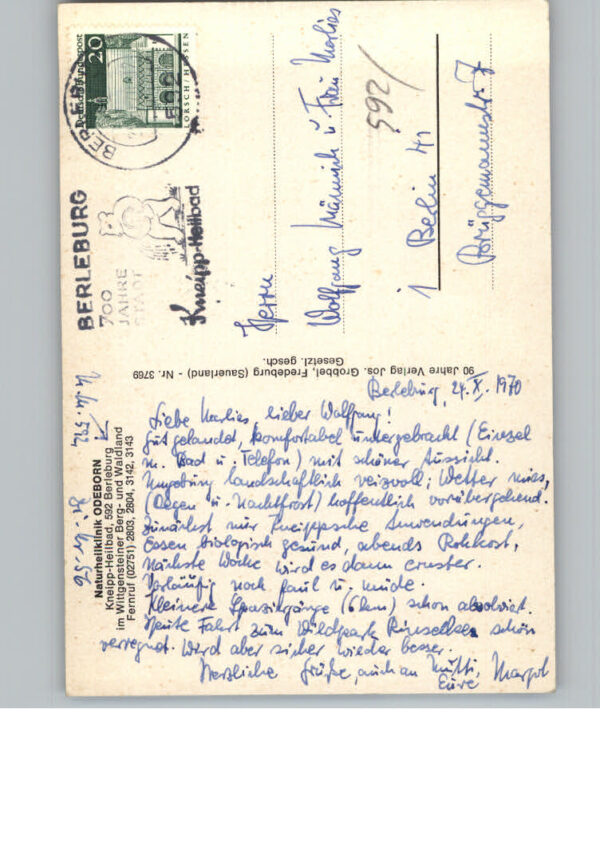 Deutsche Bundespost
20
LORSCH/HESSEN
BERLEBURG
700
JAHRE
STADT
Kneipp-Heilbad
Herrn
Wolfgang u Frau Marlies
592/
1 Berlin 41
Brüggemannstr. 7
90 Jahre Verlag Jos. Grobbel, Fredeburg (Sauerland) - Nr. 3769
Gesetzl. gesch.
Naturheilklinik ODEBORN
Kneipp-Heilbad, 592 Berleburg
im Wittgensteiner Berg- und Waldland
Fernruf (02751) 2803, 2804, 3142, 3143
Berleburg, 24. X. 1970
Liebe Marlies, lieber Wolfgang!
Gut gelandet, komfortabel untergebracht (Einzel
m. Bad u. Telefon) mit schöner Aussicht.
Umgebung landschaftlich reizvoll; Wetter mies,
(Regen u. Nachtfrost) hoffentlich vorübergehend.
Zunächst nur Kneippsche Anwendungen,
Essen biologisch gesund, abends Rohkost,
nächste Woche wird es dann ernster.
Vorläufig noch faul u. müde.
Kleinere Spaziergänge (6 km) schon absolviert.
Heute Fahrt zum Wildpark schön
verregnet. Wird aber sicher wieder besser.
Herzliche Grüße, auch an Mutti,
Eure Margot